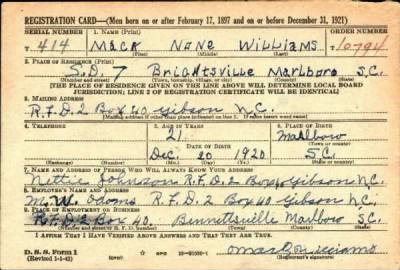 REGISTRATION CARD—(Men born on or after February 17, 1897 and on or before December 31, 1921)
SERIAL NUMBER 1. NAME (Print) ORDER NUMBER
T 414 Mack Nane Williams T 10794
(First) (Middle) (Last)
2. PLACE OF RESIDENCE (Print)
S.D. 7 Brightsville Marlboro S.C.
(Number and street) (Town, township, village, or city) (County) (State)
[THE PLACE OF RESIDENCE GIVEN ON THE LINE ABOVE WILL DETERMINE LOCAL BOARD
JURISDICTION; LINE 2 OF REGISTRATION CERTIFICATE WILL BE IDENTICAL]
3. MAILING ADDRESS
R.F.D. 2 Box 40 Gibson N.C.
[Mailing address if other than place indicated on line 2. If same insert word same]
4. TELEPHONE 5. AGE IN YEARS 6. PLACE OF BIRTH
21 Marlboro
DATE OF BIRTH (Town or county)
Dec. 20 1920 S.C.
(Exchange) (Number) (Mo.) (Day) (Yr.) (State or country)
7. NAME AND ADDRESS OF PERSON WHO WILL ALWAYS KNOW YOUR ADDRESS
Nettie Johnson R.F.D. 2 Box 40 Gibson N.C.
8. EMPLOYER'S NAME AND ADDRESS
M. W. Adams R.F.D. 2 Box 40 Gibson N.C.
9. PLACE OF EMPLOYMENT OR BUSINESS
R.F.D. 2 Box 40. Bennettsville Marlboro S.C.
(Number and street or R. F. D. number) (Town) (County) (State)
I AFFIRM THAT I HAVE VERIFIED ABOVE ANSWERS AND THAT THEY ARE TRUE.
D. S. S. Form 1
(Revised 1-1-42) GPO (Registrant's signature)